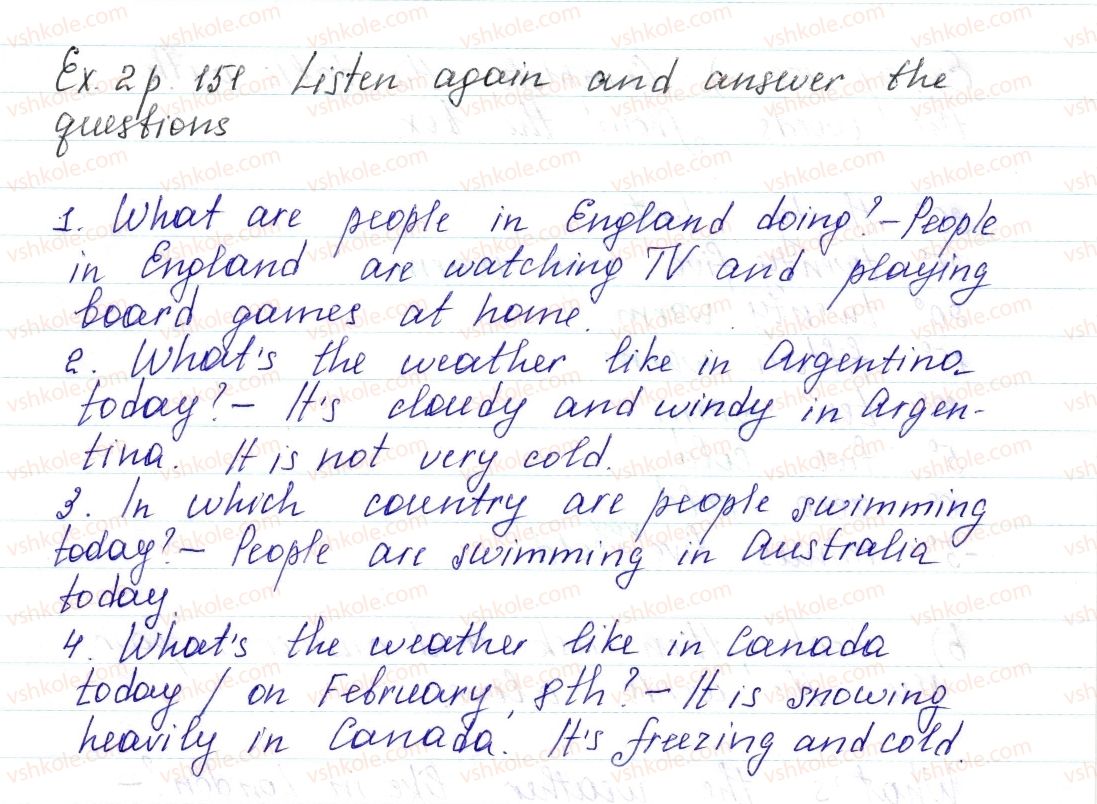 Ex. 2 p. 151 Listen again and answer the
questions
1. What are people in England doing? – People
in England are watching TV and playing
board games at home.
2. What's the weather like in Argentina
today? – It's cloudy and windy in Argen-
tina. It is not very cold.
3. In which country are people swimming
today? – People are swimming in Australia
today.
4. What's the weather like in Canada
today / on February, 8th? – It is snowing
heavily in Canada. It's freezing and cold.
vshkole.com